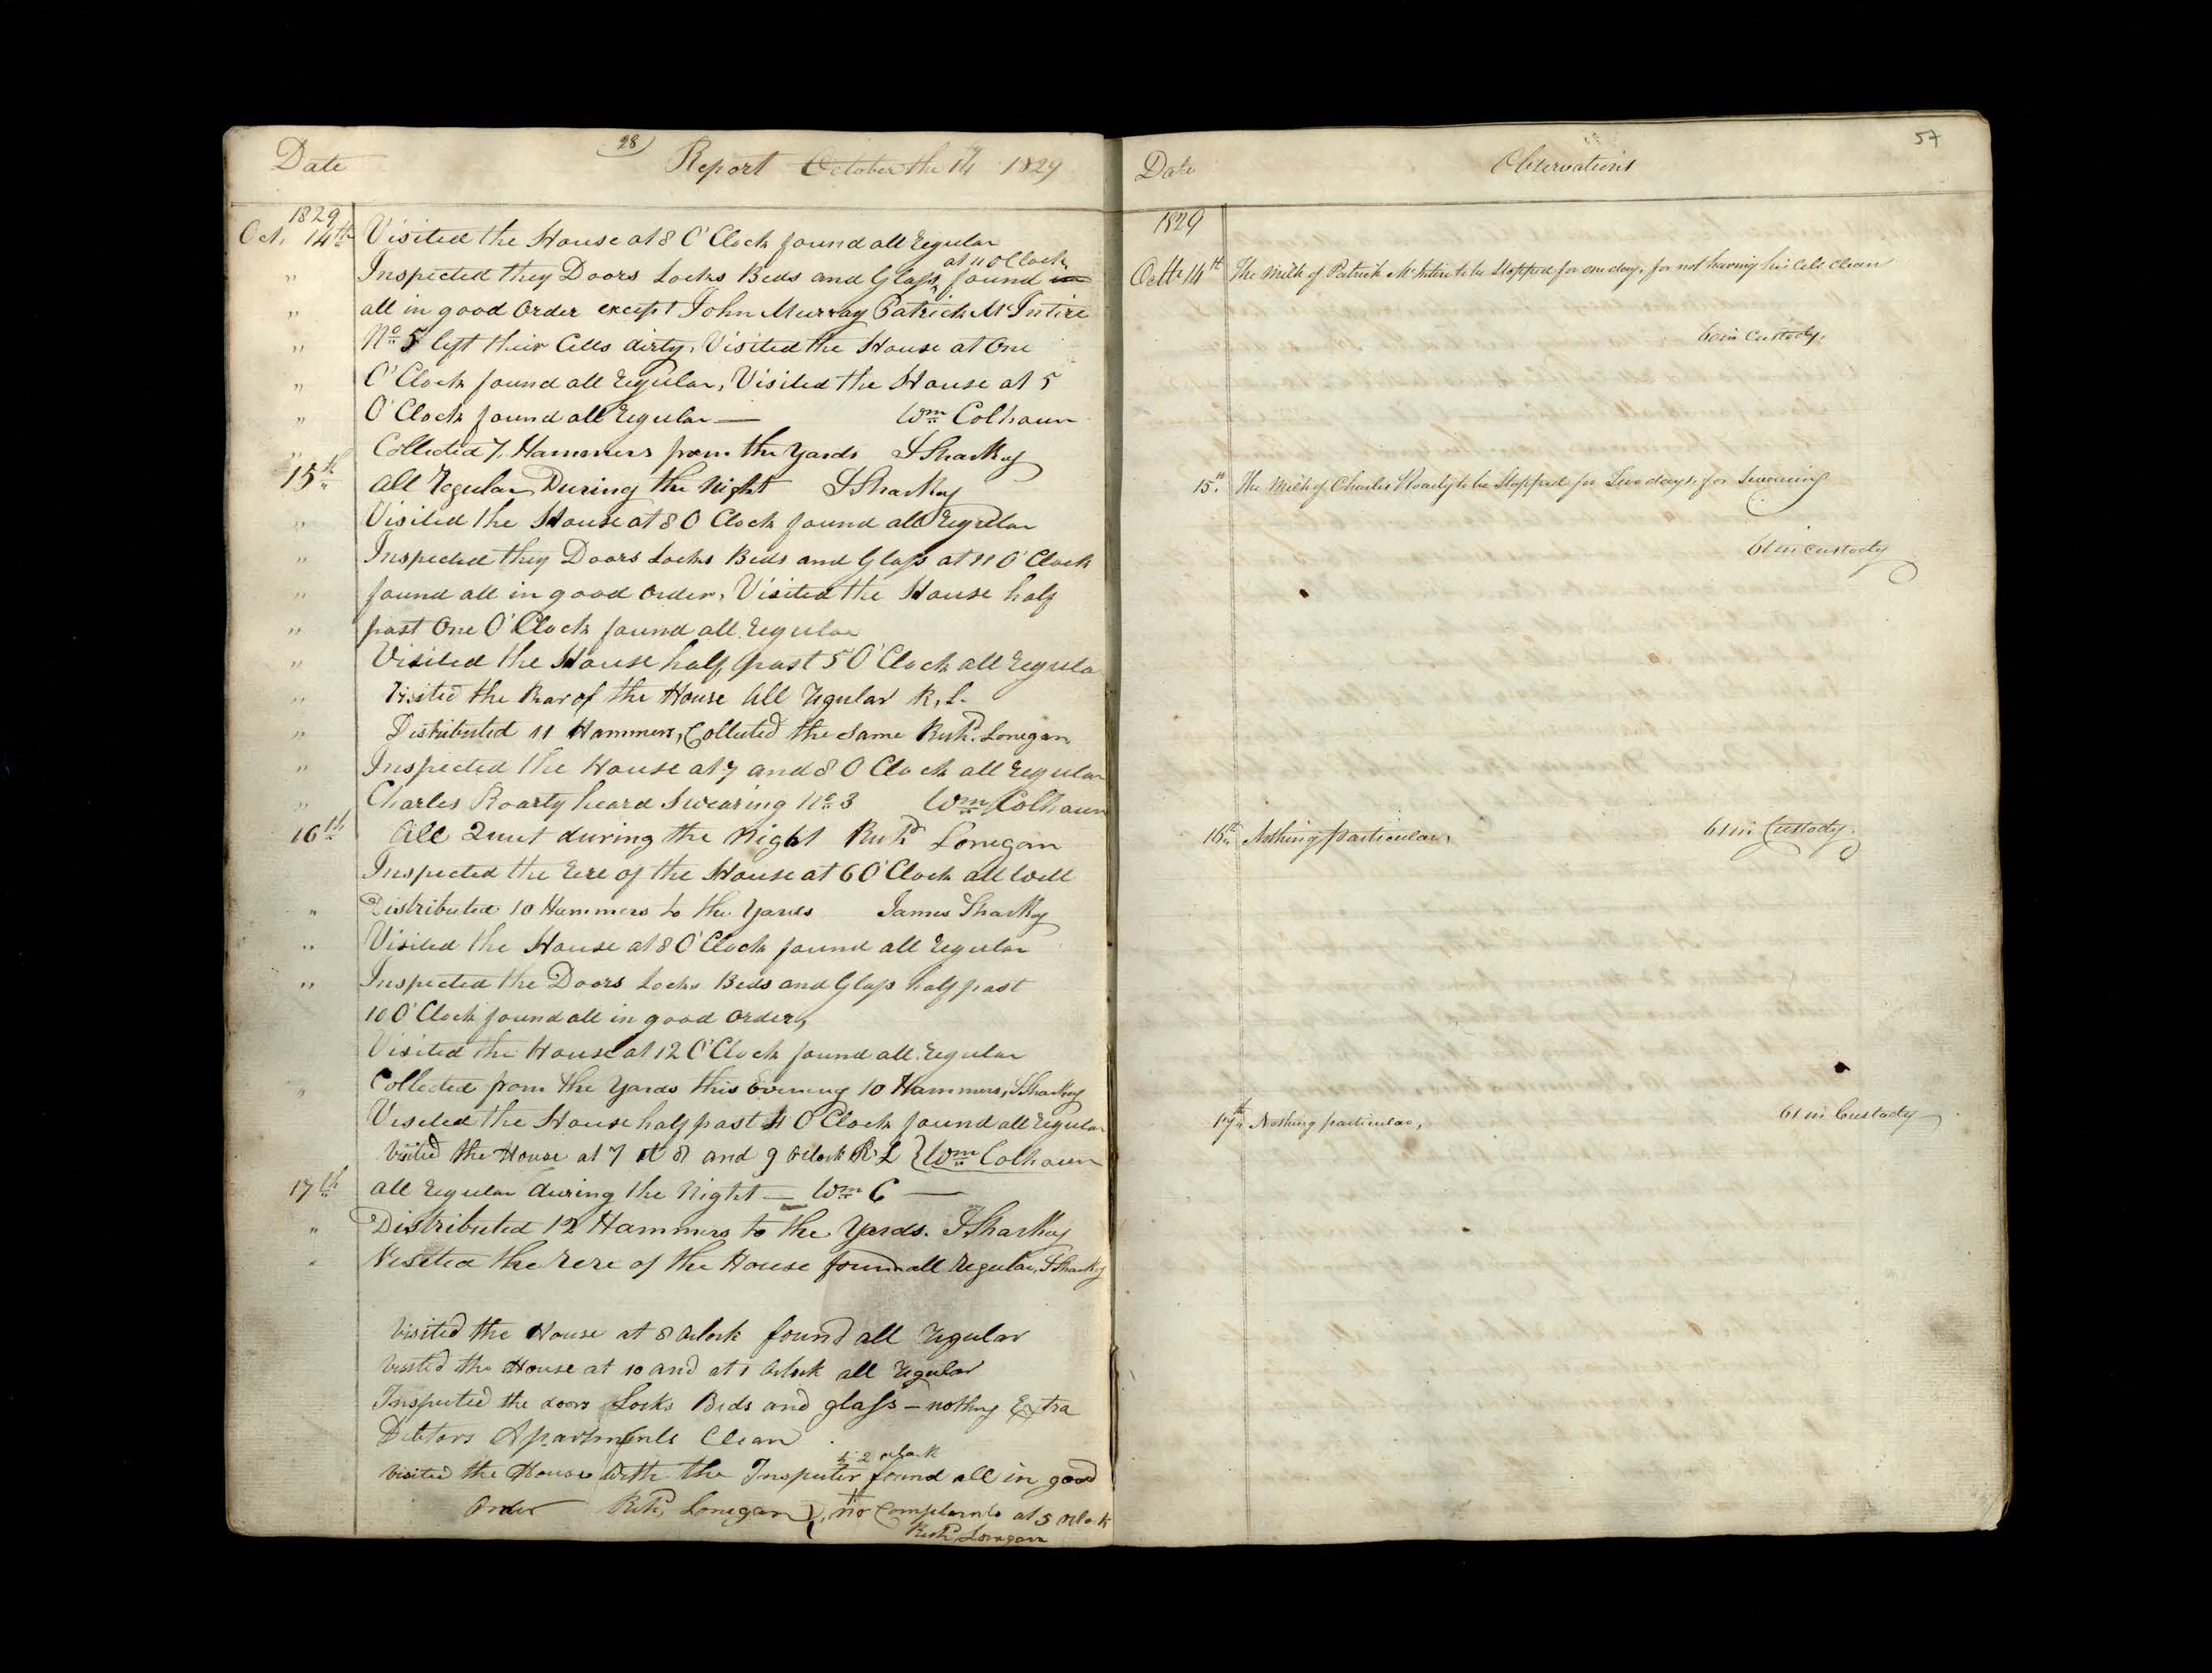 Date
28)
Report October the 14th 1829
1829
Oct. 14th Visited the House at 8 O'Clock found all Regular
at 11 O'Clock
" Inspected they Doors Locks Beds and Glass, found in
" all in good Order except John Murray Patrick McIntire
" No 5 left their Cells dirty, Visited the House at One
" O'Clock found all Regular, Visited the House at 5
" O'Clock found all Regular — Wm Colhoun
" Collected 7 Hammers from the Yards J Sharkey
15th all Regular During the Night J Sharkey
" Visited the House at 8 O Clock found all Regular
" Inspected they Doors Locks Beds and Glass at 11 O'Clock
" found all in good Order, Visited the House half
" past One O'Clock found all Regular
" Visited the House half past 5 O'Clock all Regula
" Visited the Rear of the House All Regular R, L.
" Distributed 11 Hammers, Collected the same Richd. Lonegan
" Inspected the House at 7 and 8 O Clock all Regular
" Charles Roarty heard Swearing No 3 Wm Colhoun
16th All Quiet during the Night Richd Lonegan
Inspected the Rere of the House at 6 O'Clock all Well
" Distributed 10 Hammers to the Yards James Sharkey
" Visited the House at 8 O'Clock found all Regular
" Inspected the Doors Locks Beds and Glass half past
10 O'Clock found all in good Order,
Visited the House at 12 O'Clock found all Regular
" Collected from the Yards this Evening 10 Hammers, J Sharkey
Visited the House half past 4 O'Clock found all Regular
Visited the House at 7 at 8 and 9 oClock R L } Wm Colhoun
17th all Regular during the Night — Wm C —
" Distributed 12 Hammers to the Yards. J Sharkey
" Visited the Rere of the House found all Regular, J Sharkey
Visited the House at 8 oClock found all Regular
Visited the House at 10 and at 1 oClock all Regular
Inspected the doors Locks Beds and glass — nothing Extra
Debtors Apartments Clean
2 oClock
Visited the House with the Inspecter found all in good
Order Richd, Lonegan }, no Complaints at 5 oClock
Richd Lonegan
57
Date
Observations
1829
Octr 14th The Milk of Patrick McIntire to be Stopped for one day, for not having his Cell Clean
60 in Custody,
15th The Milk of Charles Roarty to be Stopped for Two days, for Swearing
61 in Custody
16th Nothing particular, 61 in Custody.
17th Nothing particular, 61 in Custody